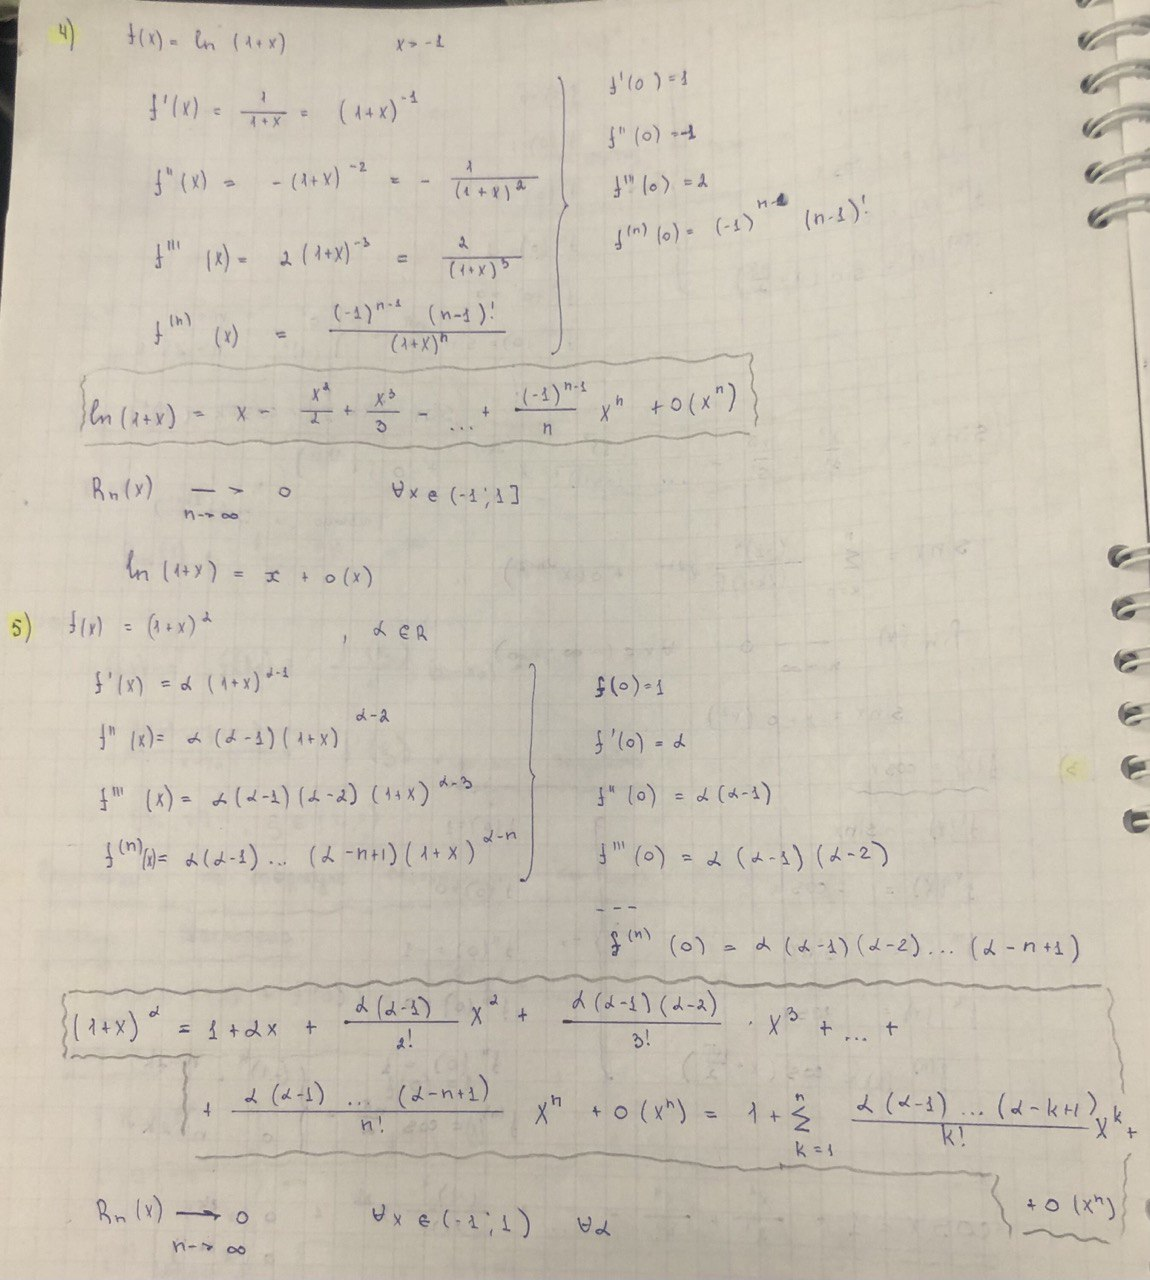 4) f(x) = ln (1+x) x > -1
f'(x) = 1/(1+x) = (1+x)^{-1}
f''(x) = -(1+x)^{-2} = - 1/(1+x)^2
f'''(x) = 2(1+x)^{-3} = 2/(1+x)^3
f^{(n)}(x) = (-1)^{n-1} (n-1)!/(1+x)^n
f'(0) = 1
f''(0) = -1
f'''(0) = 2
f^{(n)}(0) = (-1)^{n-1} (n-1)!
ln(1+x) = x - x^2/2 + x^3/3 - ... + (-1)^{n-1}/n x^n + o(x^n)
R_n(x) → 0 ∀x ∈ (-1; 1]
n→∞
ln(1+x) = x + o(x)
5) f(x) = (1+x)^α , α ∈ R
f'(x) = α(1+x)^{α-1}
f''(x) = α(α-1)(1+x)^{α-2}
f'''(x) = α(α-1)(α-2)(1+x)^{α-3}
f^{(n)}(x) = α(α-1)...(α-n+1)(1+x)^{α-n}
f(0) = 1
f'(0) = α
f''(0) = α(α-1)
f'''(0) = α(α-1)(α-2)
---
f^{(n)}(0) = α(α-1)(α-2)...(α-n+1)
(1+x)^α = 1 + αx + α(α-1)/2! x^2 + α(α-1)(α-2)/3! · x^3 + ... +
+ α(α-1)...(α-n+1)/n! x^n + o(x^n) = 1 + ∑_{k=1}^{n} α(α-1)...(α-k+1)/k! x^k +
+ o(x^n)
R_n(x) → 0 ∀x ∈ (-1; 1) ∀α
n→∞